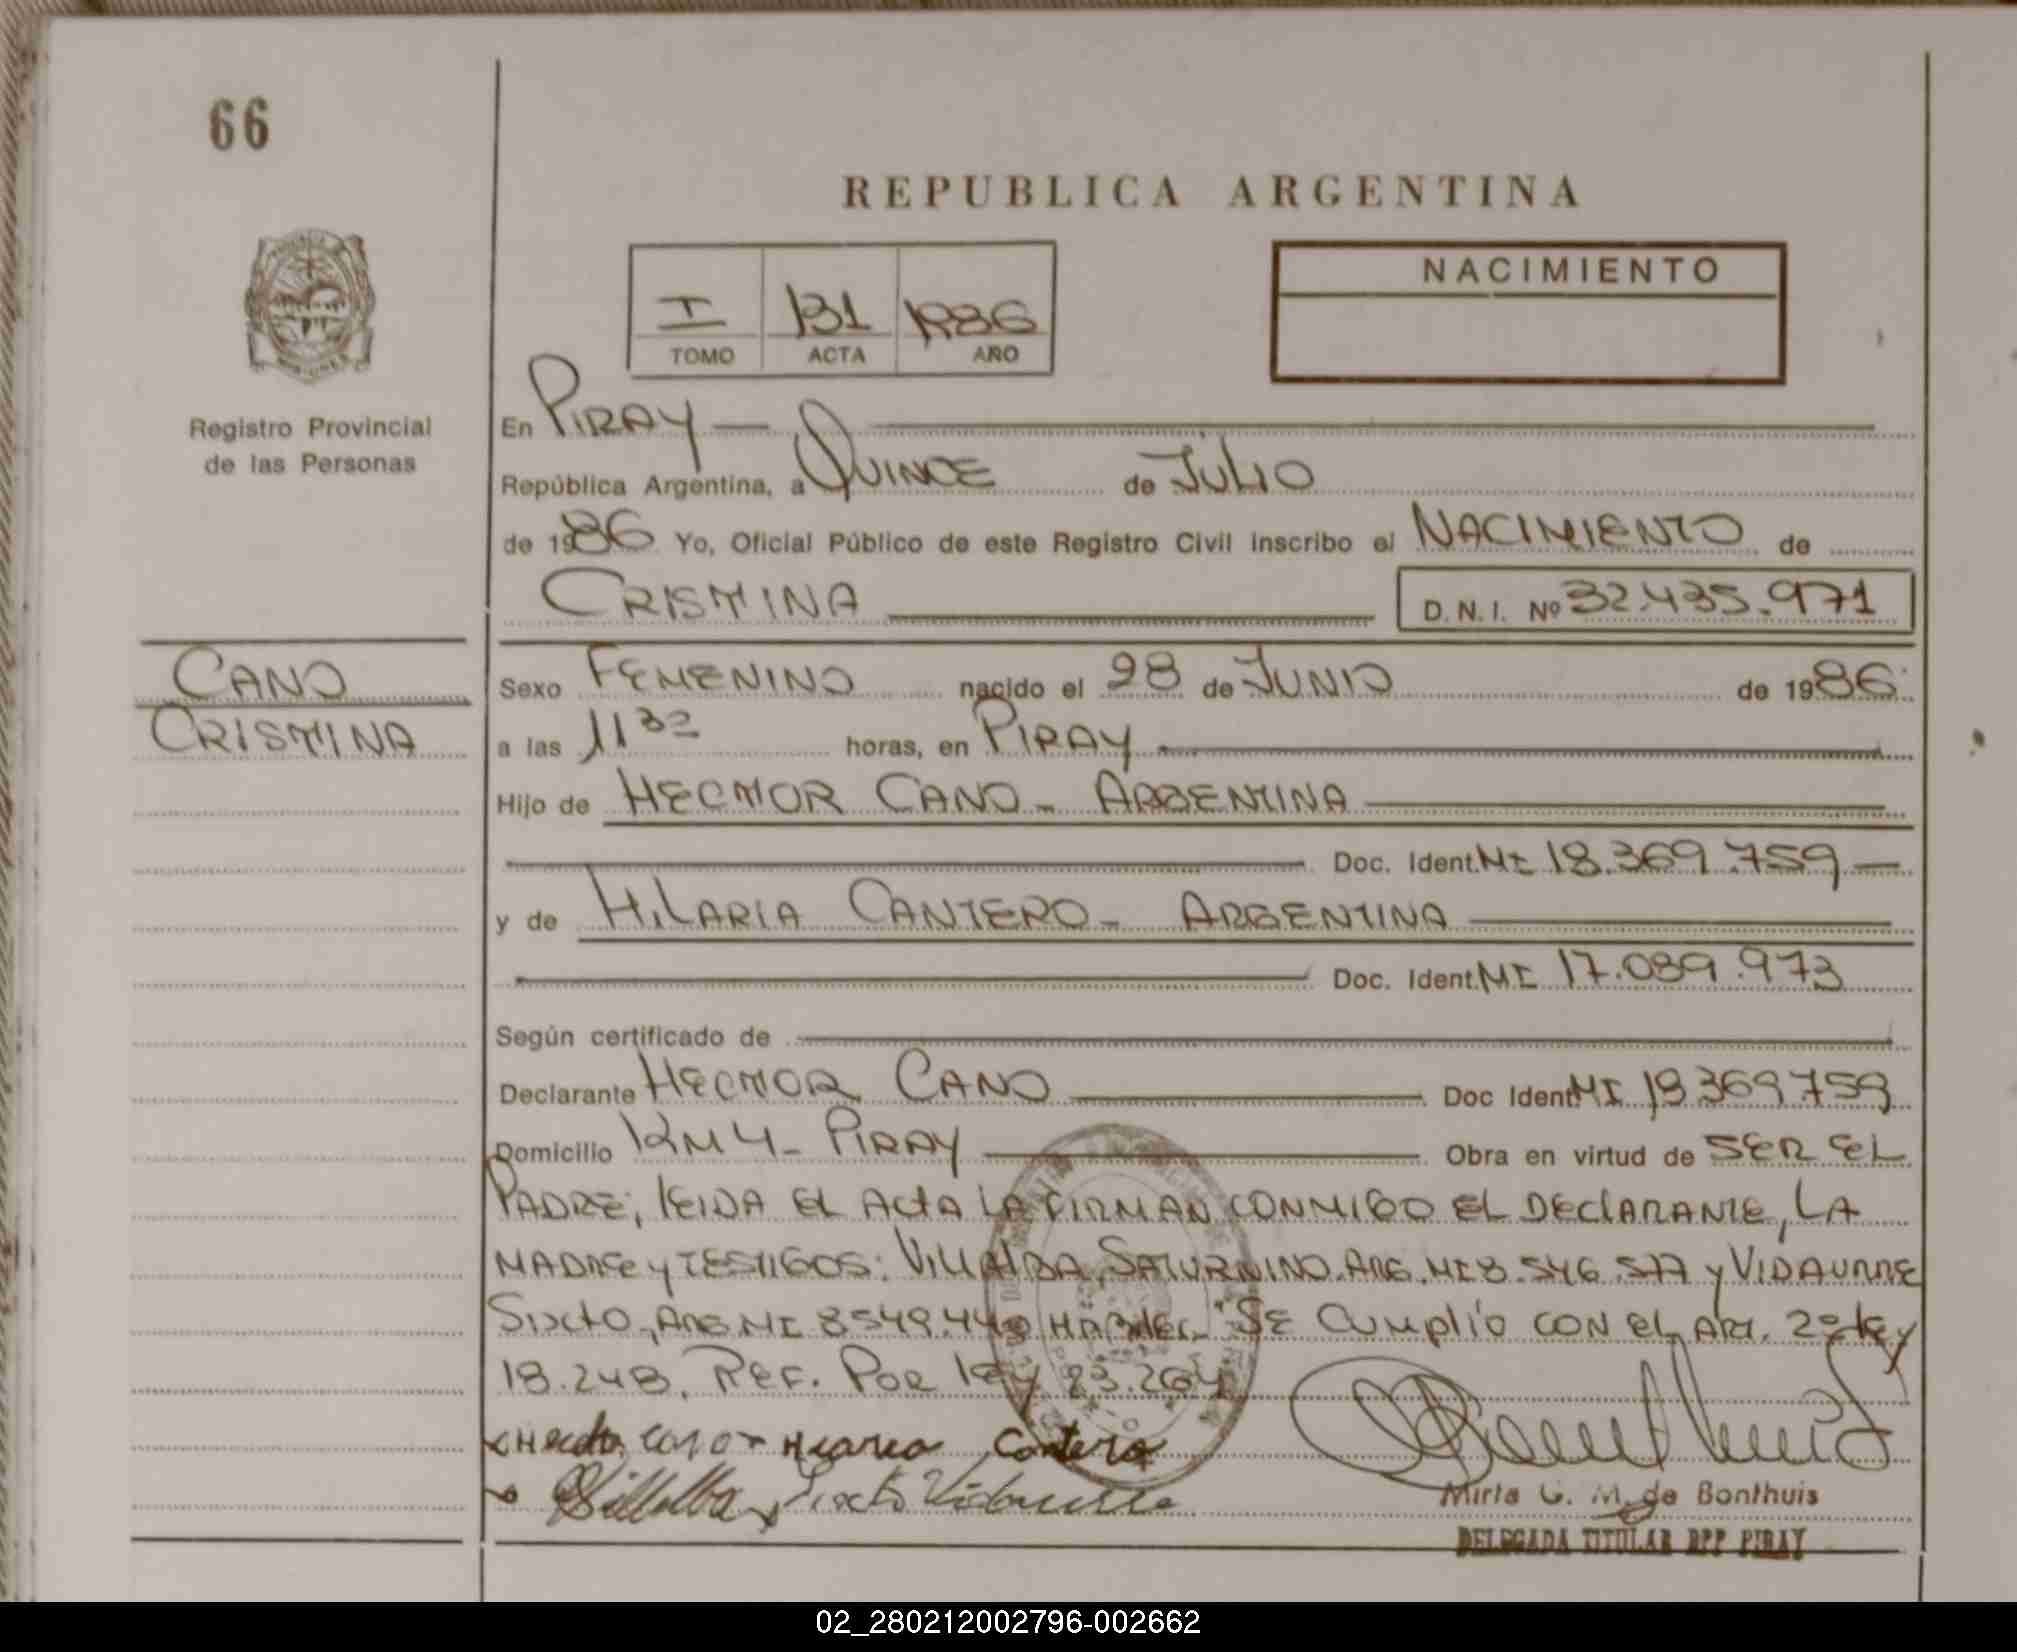 66
REPUBLICA ARGENTINA
I 131 1986
TOMO ACTA AÑO
NACIMIENTO
Registro Provincial
de las Personas
En PIRAY
República Argentina, a QUINCE de JULIO
de 1986 Yo, Oficial Público de este Registro Civil inscribo el NACIMIENTO de
CRISTINA D.N.I. Nº 32.435.971
CANO
CRISTINA
Sexo FEMENINO nacido el 28 de JUNIO de 1986
a las 11 30 horas, en PIRAY
Hijo de HECTOR CANO - ARGENTINA
Doc. Ident. MI 18.369.759
y de HILARIA CANTERO - ARGENTINA
Doc. Ident. MI 17.089.973
Según certificado de
Declarante HECTOR CANO Doc Ident MI 18369759
Domicilio KM 4 - PIRAY Obra en virtud de SER EL
PADRE; LEIDA EL ACTA LA FIRMAN CONMIGO EL DECLARANTE, LA
MADRE y TESTIGOS: VILLALBA, SATURNINO. ARG. MI 8.546.577 y VIDAURRE
SIXTO, ARG. MI 8549.44 "SE CUMPLIO CON EL ART. 2º LEY
18.248, REF. POR LEY 23.264
Hector Cano Hilaria Cantero
Villalba Sixto Vidaurre
Mirta G. M. de Bonthuis
DELEGADA TITULAR RPP PIRAY
02_280212002796-002662